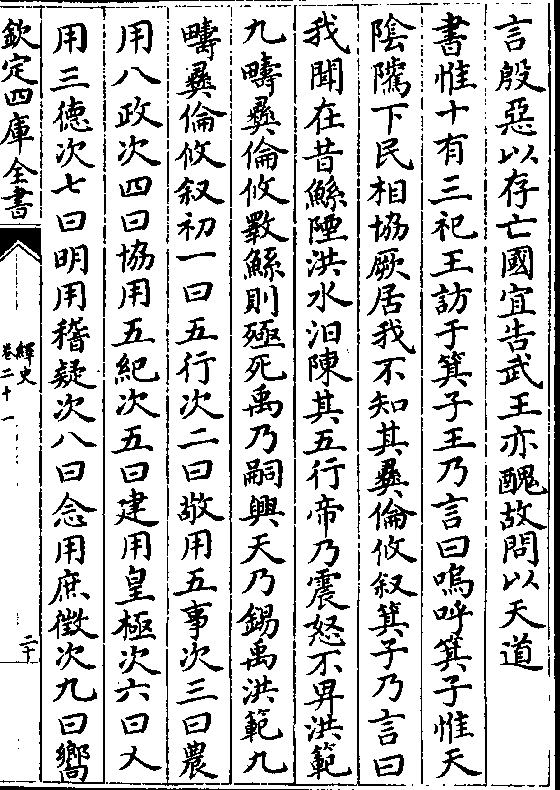 言殷惡以存亡國宜告武王亦醜故問以天道
書惟十有三祀王訪于箕子王乃言曰嗚呼箕子惟天
陰隲下民相協厥居我不知其彝倫攸叙箕子乃言曰
我聞在昔鯀陻洪水汩陳其五行帝乃震怒不畀洪範
九疇彝倫攸斁鯀則殛死禹乃嗣興天乃錫禹洪範九
疇彝倫攸叙初一曰五行次二曰敬用五事次三曰農
用八政次四曰協用五紀次五曰建用皇極次六曰乂
用三德次七曰明用稽疑次八曰念用庶徵次九曰嚮
欽定四庫全書
繹史
卷二十一
二十